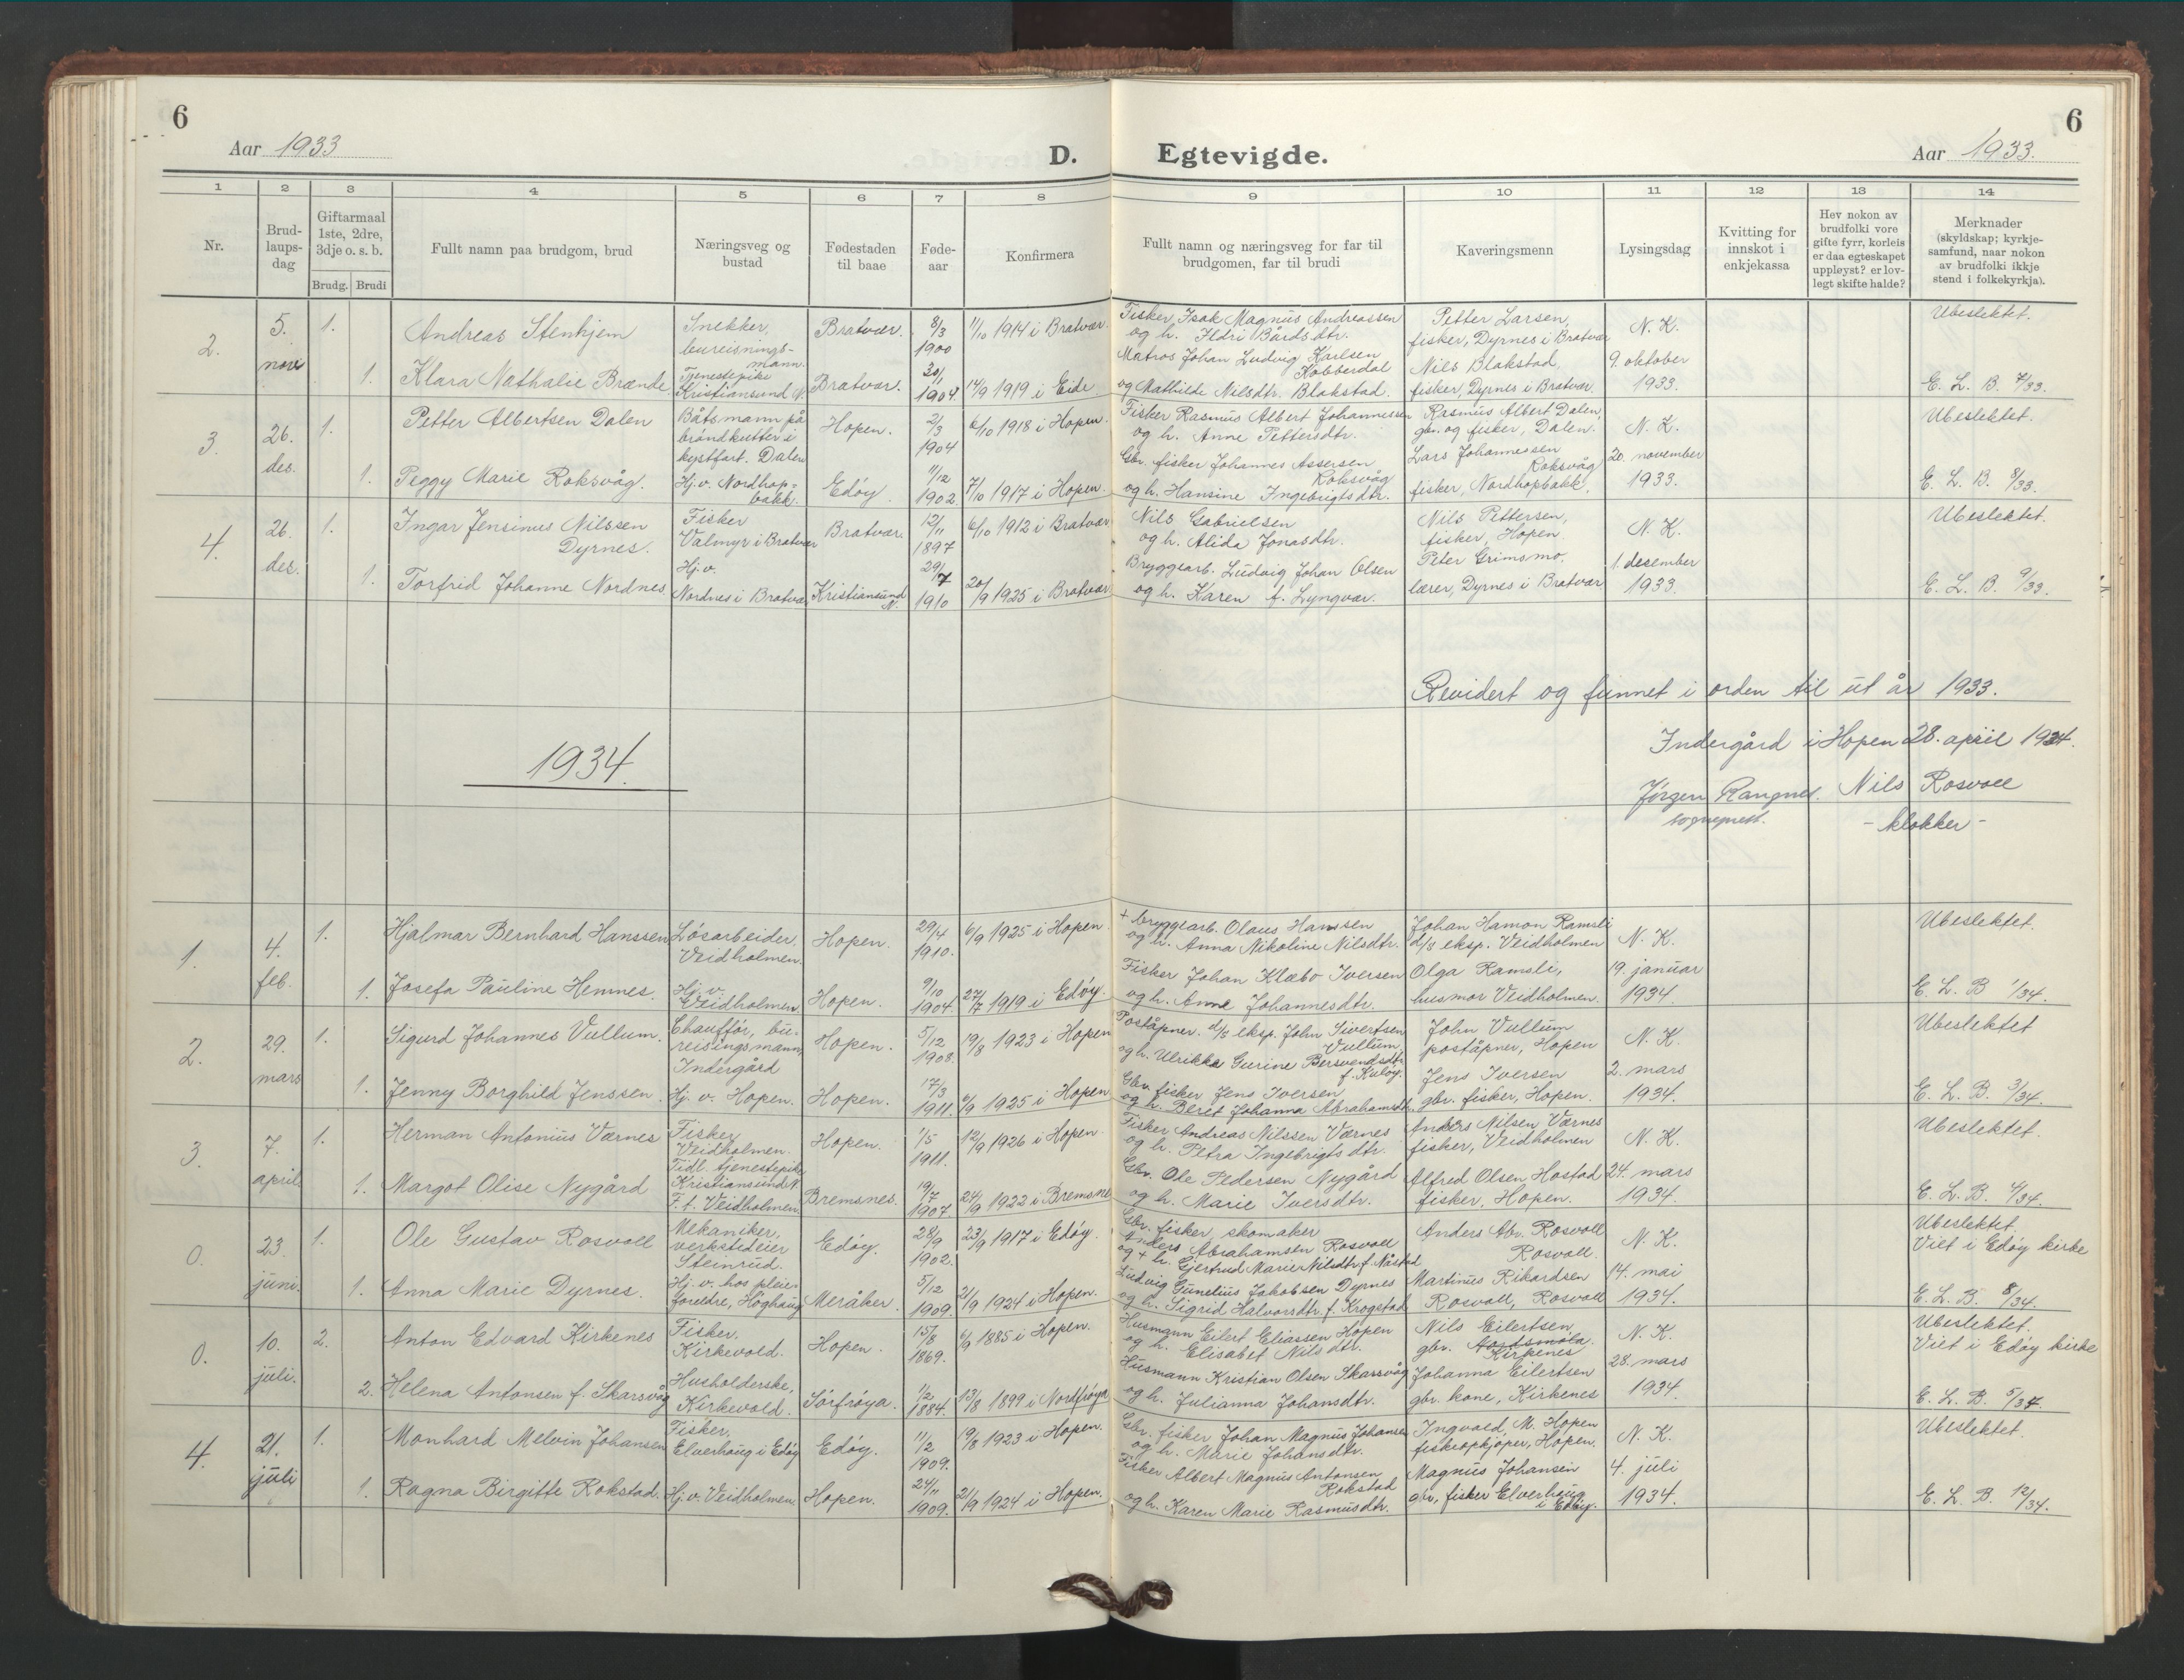 6
6
Aar 1933
D. Egtevigde.
Aar 1933.
1 2 3 4 5 6 7 8 9 10 11 12 13 14
Nr.
Brud-
laups-
dag
Giftarmaal
1ste, 2dre,
3dje o. s. b.
Brudg. Brudi
Fullt namn paa brudgom, brud
Næringsveg og
bustad
Fødestaden
til baae
Føde-
aar
Konfirmera
Fullt namn og næringsveg for far til
brudgomen, far til brudi
Kaveringsmenn
Lysingsdag
Kvitting for
innskot i
enkjekassa
Hev nokon av
brudfolki vore
gifte fyrr, korleis
er daa egteskapet
uppløyst? er lov-
legt skifte halde?
Merknader
(skyldskap; kyrkje-
samfund, naar nokon
av brudfolki ikkje
stend i folkekyrkja).
2.
5.
nov.
1.
Andreas Stenhjem
Snekker,
bureisnings-
mann.
Bratvær.
8/3
1900
11/10 1914 i Bratvær.
Fisker, Isak Magnus Andreassen
og h. Ildri Bårdsdtr.
Petter Larsen,
fisker, Dyrnes i Bratvær
N. K.
Ubeslektet.
1.
Klara Nathalie Brænde
Tjenestepike
Kristiansund N.
Bratvær.
20/11
1904.
14/9 1919 i Eide
Matros Johan Ludvig Karlsen
Kobberdal
og Mathilde Nilsdtr. Blakstad.
Nils Blakstad,
fisker, Dyrnes i Bratvær.
9. oktober
1933.
E. L. B. 7/33.
3.
26.
des.
1.
Petter Albertsen Dalen
Båtsmann på
brøndkutter i
kystfart. Dalen
Hopen.
2/3
1904
6/10 1918 i Hopen.
Fisker Rasmus Albert Johannessen
og h. Anne Pettersdtr.
Rasmus Albert Dalen,
gbr. og fisker, Dalen.
N. K.
Ubeslektet.
1.
Peggy Marie Roksvåg.
Hj. v. Nordhop=
bakk.
Edøy
11/12
1902.
7/10 1917 i Hopen.
Gbr. fisker Johannes Assersen
Roksvåg
og h. Hansine Ingebrigtsdtr.
Lars Johannessen
Roksvåg
fisker, Nordhopbakk.
20. november
1933.
E. L. B. 8/33.
4.
26.
des.
1.
Ingar Jensinus Nilssen
Dyrnes.
Fisker
Valmyr i Bratvær
Bratvær.
12/11
1897
6/10 1912 i Bratvær
Nils Gabrielsen
og h. Alida Jonasdtr.
Nils Pettersen,
fisker, Hopen.
N. K.
Ubeslektet.
1.
Torfrid Johanne Nordnes.
Hj. v.
Nordnes i Bratvær
Kristiansund
N.
29/7
1910
20/9 1925 i Bratvær
Bryggearb. Ludvig Johan Olsen
og h. Karen f. Lyngvær.
Peter Grimsmo.
lærer, Dyrnes i Bratvær
1. desember
1933.
E. L. B. 9/33.
Revidert og funnet i orden til ut år 1933.
Indergård i Hopen 28. april 1934.
Jørgen Rangnes. Nils Rosvoll
sogneprest. - klokker -
1934.
1.
4.
feb.
1.
Hjalmar Bernhard Hanssen
Løsarbeider.
Veidholmen.
Hopen.
29/4
1910.
6/9 1925 i Hopen.
+ bryggearb. Olaus Hanssen
og h. Anna Nikoline Nilsdtr.
Johan Hamon Ramsli
d/s eksp. Veidholmen
N. K.
Ubeslektet.
1.
Josefa Pauline Hemnes.
Hj. v.
Veidholmen
Hopen.
9/10
1904.
27/7 1919 i Edøy.
Fisker Johan Klæbo Iversen
og h. Anne Johannesdtr.
Olga Ramsli,
husmor Veidholmen.
19. januar
1934.
E. L. B 1/34.
2.
29.
mars
1.
Sigurd Johannes Vullum.
Chauffør, bu-
reisingsmann,
Indergård
Hopen.
5/12
1908.
19/8 1923 i Hopen
Poståpner. d/s eksp. John Sivertsen
Vullum,
og h. Ulrikka Gurine Bersvendsdtr.
f. Kuløy.
John Vullum
poståpner, Hopen
N. K.
Ubeslektet
1.
Jenny Borghild Jenssen.
Hj. v. Hopen.
Hopen.
17/3
1911.
6/9 1925 i Hopen
Gbr. fisker Jens Iversen
og h. Beret Johanna Abrahamsdtr.
Jens Iversen
gbr. fisker, Hopen.
2. mars
1934.
E. L. B. 3/34.
3.
7.
april
1.
Herman Antonius Værnes
Fisker,
Veidholmen.
Hopen.
1/5
1911.
12/9 1926 i Hopen.
Fisker Andreas Nilssen Værnes
og h. Petra Ingebrigtsdtr.
Anders Nilsen Værnes
fisker, Veidholmen
N. K.
Ubeslektet.
1.
Margot Olise Nygård
Tidl. tjenestepike
Kristiansund N.
F. t. Veidholmen.
Bremsnes.
19/7
1907.
24/9 1922 i Bremsnes
Gbr. Ole Pedersen Nygård
og h. Marie Iversdtr.
Alfred Olsen Hostad
fisker, Hopen.
24. mars
1934.
E. L. B. 4/34.
0.
23.
juni.
1.
Ole Gustav Rosvoll
Mekaniker,
verkstedeier
Steinrud.
Edøy.
28/9
1902.
23/9 1917 i Edøy.
Gbr. fisker, skomaker
Anders Abrahamsen Rosvoll
og + h. Gjertrud Marie Nilsdtr. f. Nåstad
Anders Abr. Rosvoll
Rosvoll.
N. K.
Ubeslektet.
Viet i Edøy kirke
1.
Anna Marie Dyrnes.
Hj. v. hos pleie-
foreldre, Høghaug
Meråker.
5/12
1909.
21/9 1924 i Hopen.
Ludvig Gunelius Jakobsen Dyrnes
og h. Sigrid Halvorsdtr. f. Krogstad
Martinus Rikardsen
Rosvoll, Rosvoll
14. mai
1934.
E. L. B. 8/34.
0.
10.
juli.
2.
Anton Edvard Kirkenes
Fisker.
Kirkevold.
Hopen.
15/8
1869.
6/9 1885 i Hopen.
Husmann Eilert Eliassen Hopen
og h. Elisabet Nilsdtr.
Nils Eilertsen,
gbr.
Kirkenes
N. K.
Ubeslektet.
Viet i Edøy kirke
2.
Helena Antonsen f. Skarsvåg
Husholderske,
Kirkevold.
Sørfrøya.
1/2
1884.
13/8 1899 i Nordfrøya
Husmann Kristian Olsen Skarsvåg
og h. Julianna Johansdtr.
Johanna Eilertsen
gbr. kone, Kirkenes
28. mars
1934.
E. L. B. 5/34.
4.
21.
juli
1.
Monhard Melvin Johansen
Fisker,
Elverhaug i Edøy
Edøy.
11/2
1909.
19/8 1923 i Hopen.
Gbr. fisker Johan Magnus Johansen
og h. Marie Johansdtr.
Ingvald, M. Hopen
fiskeopkjøper, Hopen.
N. K.
Ubeslektet.
1.
Ragna Birgitte Rokstad.
Hj. v. Veidholmen.
Hopen.
24/11
1909.
21/9 1924 i Hopen.
Fisker Albert Magnus Antonsen
Rokstad
og h. Karen Marie Rasmusdtr.
Magnus Johansen
gbr, fisker Elverhaug
i Edøy.
4. juli
1934.
E. L. B. 12/34.